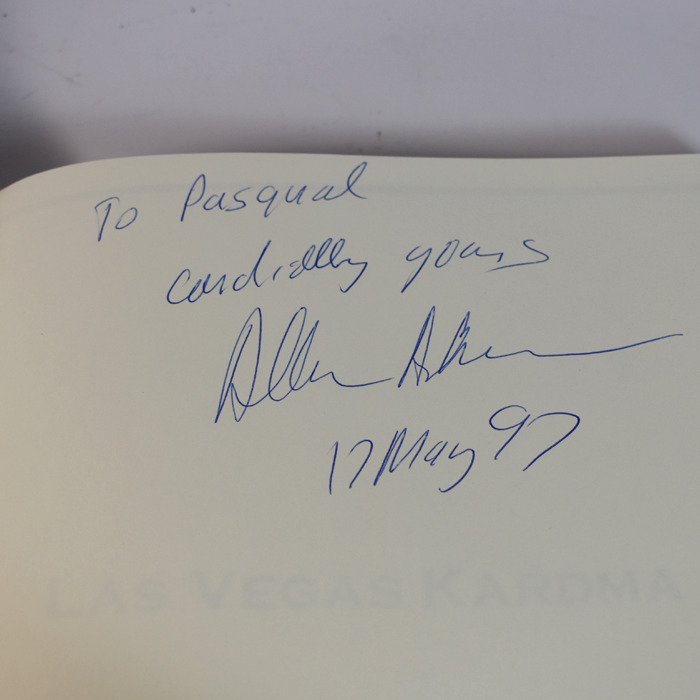 To Pasqual
cordially yours
Allan Ackerman
17 May 97
LAS VEGAS KARDMA